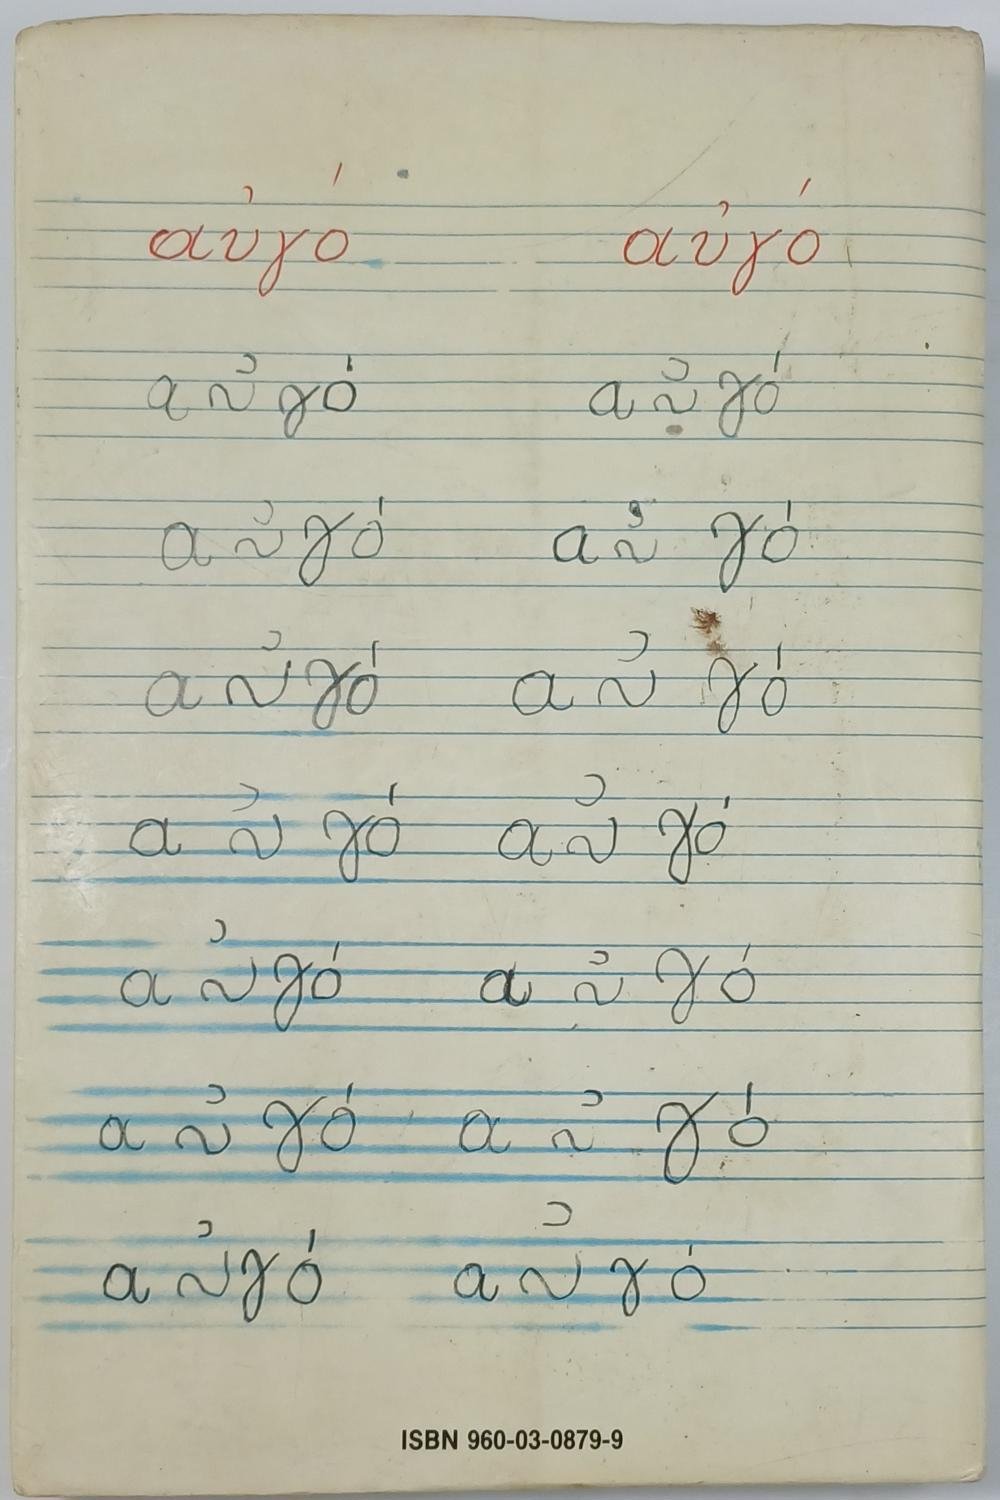 αὐγό αὐγό
αὐγό αὐγό
αὐγό αὐγό
αὐγό αὐγό
αὐγό αὐγό
αὐγό αὐγό
αὐγό αὐγό
αὐγό αὐγό
ISBN 960-03-0879-9